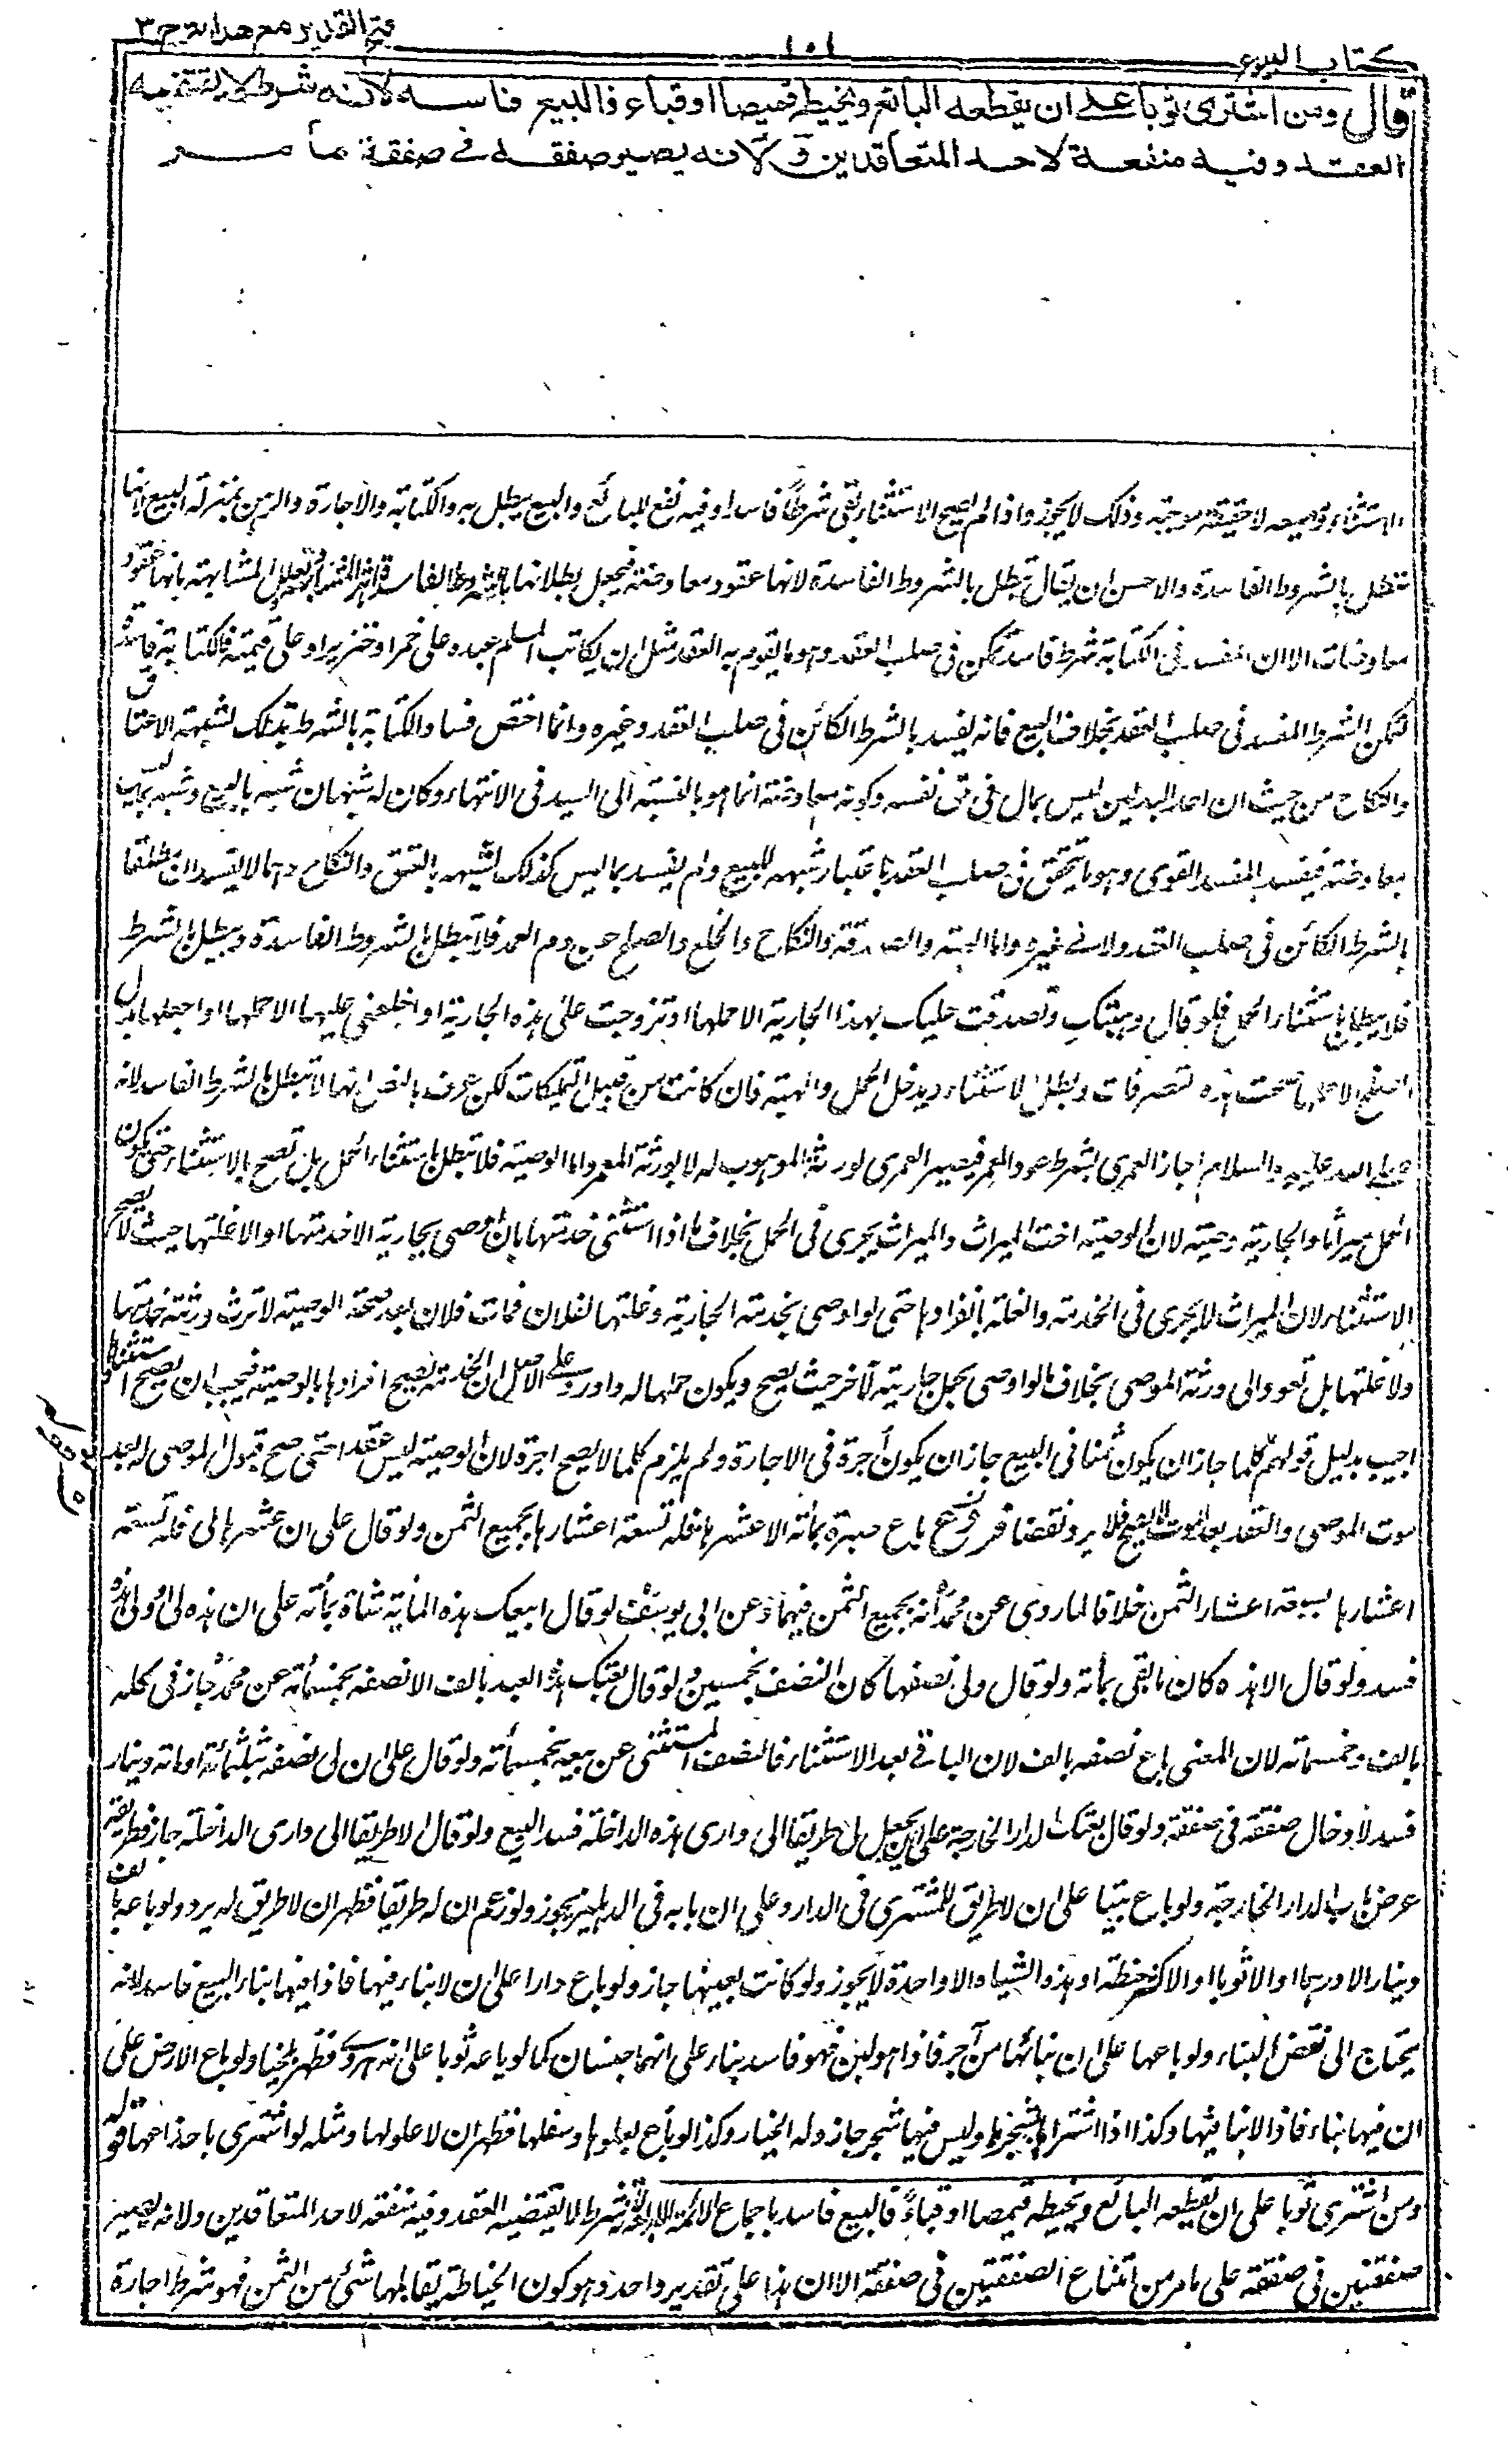 كتاب البيوع
١٠١
فتح القدير مع هداية ج ٣
قال ومن اشترى ثوبا على ان يقطعه البائع ويخيطه قميصا او قباء فالبيع فاسد لانه شرط لا يقتضيه
العقد وفيه منفعة لاحد المتعاقدين ولانه يصير صفقة في صفقة ما مر
الاستثناء لحقيقة موجبه وذلك لا يجوز واذا لم يصح الاستثناء بقى شرطا فاسدا وفيه نفع للبائع والبيع يبطل به والكتابة والاجارة والرهن بمنزلة البيع لانها
تبطل بالشروط الفاسدة والاحسن ان يقال تبطل بالشروط الفاسدة لانها عقود معاوضة فيجعل بطلانها بالشروط الفاسدة المشابهة بانها عقود
معاوضات الا ان المفسد في الكتابة شرط فاسد يتمكن في صلب العقد وهو ما يقوم به العقد مثل ان يكاتب المسلم عبده على خمر او خنزير او على قيمته فالكتابة فاسدة
لتمكن الشرط المفسد في صلب العقد بخلاف البيع فانه يفسد بالشرط الكائن في صلب العقد وغيره وانما اختص فساد الكتابة بالشرط بذلك لشبهة الاعتاق
والنكاح من حيث ان احد البدلين ليس بمال في حق نفسه وكونه معاوضة انما هو بالنسبة الى السيد في الانتهاء وكان له شبهان شبه بالبيع وشبه بما ليس
معاوضة فيفسد بالمفسد القوى وهو ما يتحقق في صلب العقد باعتبار شبهه للبيع ولم يفسد بما ليس كذلك لشبهه بالعتق والنكاح وهما لا يفسدان مطلقا
بالشرط الكائن في صلب العقد ولا في غيره واما الهبة والصدقة والنكاح والخلع والصلح عن دم العمد فلا تبطل بالشروط الفاسدة ويبطل الشرط
فلا يبطل باستثناء الحمل فلو قال وهبتك وتصدقت عليك بهذا الجارية الا حملها او تزوجت على هذه الجارية او اخلعنى عليها الا حملها او اجعلها بدل
الصلح الا حملها صحت هذه التصرفات وبطل الاستثناء ويدخل الحمل والهبة فان كانت من قبيل التمليكات لكن عرف بالنص انها لا تبطل بالشرط الفاسد لانه
صلى الله عليه والسلام اجاز العمرى بشرط عود المعمر فيصير العمرى لورثة الموهوب له لا لورثة المعمر واما الوصية فلا تبطل باستثناء الحمل بل تصح بالاستثناء حتى يكون
الحمل ميراثا والجارية وصية لان الوصية اخت الميراث والميراث يجرى في الحمل بخلاف ما اذا استثنى خدمتها بان اوصى بجارية الا خدمتها او الا غلتها حيث لا يصح
الاستثناء لان الميراث لا يجرى في الخدمة والغلة بانفرادها حتى لو اوصى بخدمة الجارية وغلتها لفلان فمات فلان بعد صحة الوصية لا ترث ورثته خدمتها
ولا غلتها بل تعود الى ورثة الموصى بخلاف ما لو اوصى بحمل جاريته لآخر حيث يصح ويكون حملها له واورد على الاصل ان الخدمة يصح افرادها بالوصية فيجب ان يصح استثناؤها
اجيب بدليل قولهم كلما جاز ان يكون ثمنا في البيع جاز ان يكون أجرة في الاجارة ولم يلزم كلما لا يصح اجرة لان الوصية ليس عقدا حتى صح قبول الموصى له بعد
موت الموصى والعقد بعد الموت لا يصح فلا يرد نقضا فروع باع صبرة بمأته الا عشرها فله تسعة اعشارها بجميع الثمن ولو قال على ان عشرها لى فله تسعة
اعشارها بتسعة اعشار الثمن خلافا لما روى عن محمد انه بجميع الثمن فيهما وعن ابى يوسف لو قال ابيعك هذه المأية شاة بمأته على ان هذه لى او ولى هذه
فسد ولو قال الا هذه كان ما بقى بمأته ولو قال ولى نصفها كان النصف بخمسين ولو قال بعتك هذا العبد بالف الا نصفه بخمسمأته عن محمد جاز في كله
بالف وخمسمأته لان المعنى باع نصفه بالف لان الباقى بعد الاستثناء فالنصف المستثنى عن بيعه بخمسمأته ولو قال على ان لى نصفه بثلثمأته او مأته دينار
فسد لادخال صفقة في صفقة ولو قال بعتك الدار الخارجة على ان يجعل لى طريقا الى دارى هذه الداخلة فسد البيع ولو قال الا طريقا الى دارى الداخلة جاز وطريقه
عرض باب الدار الخارجة ولو باع بيتا على ان لا طريق للمشترى في الدار وعلى ان بابه في الدهليز يجوز ولو زعم ان له طريقا فظهر ان لا طريق له يرد ولو باعه بالف
دينار الا درهما او الا ثوبا او الا كر حنطة او هذه الشياه الا واحدة لا يجوز ولو كانت بعينها جاز ولو باع دارا على ان لا بناء فيها فاذا فيها بناء البيع فاسد لانه
يحتاج الى نقض البناء ولو باعها على ان بنائها من آجر فاذا هو لبن فهو فاسد بناء على انهما جنسان كما لو باعه ثوبا على انه هروى فظهر بلخيا ولو باع الارض على
ان فيها بناء فاذا لا بناء فيها وكذا اذا اشتراها بشجرها وليس فيها شجر جاز وله الخيار وكذا لو باع بعلوها وسفلها فظهر ان لا علو لها ومثله لو اشترى باجذاعها قوله
ومن اشترى ثوبا على ان يقطعه البائع ويخيطه قميصا او قباءً فالبيع فاسد باجماع الائمة الاربعة لانه شرط لا يقتضيه العقد وفيه منفعة لاحد المتعاقدين ولانه يصير
صفقتين في صفقة على ما مر من امتناع الصفقتين في صفقة الا ان هذا على تقدير واحد وهو كون الخياطة يقابلها شئ من الثمن فهو شرط اجارة